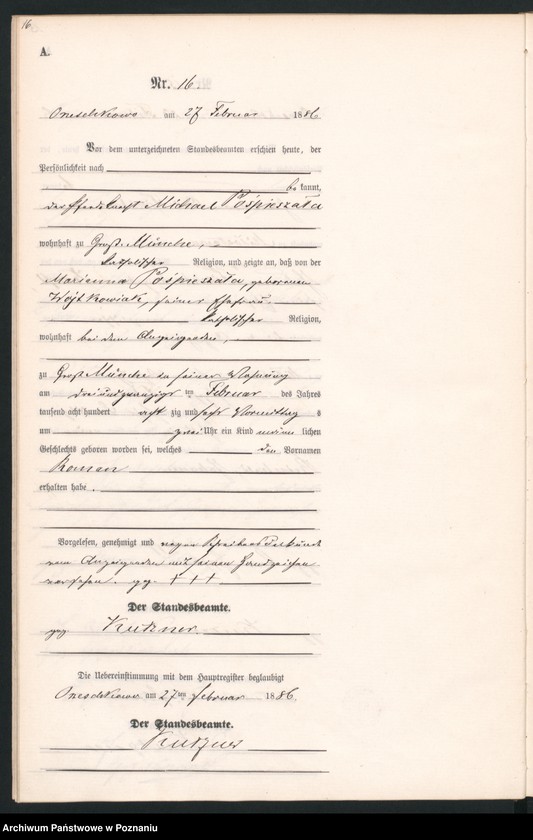 16
A.
Nr. 16.
Orzeschkowo am 27 Februar 1886
Vor dem unterzeichneten Standesbeamten erschien heute, der
Persönlichkeit nach
be kannt,
der Pferdeknecht Michael Pośpieszała
wohnhaft zu Groß Münche,
katholischer Religion, und zeigte an, daß von der
Marianna Pośpieszała, geborenen
Wojtkowiak, seiner Ehefrau
katholischer Religion,
wohnhaft bei dem Anzeigenden,
zu Groß Münche in seiner Wohnung
am dreiundzwanzigs ten Februar des Jahres
tausend acht hundert acht zig und sechs Vormittag s
um zwei Uhr ein Kind männ lichen
Geschlechts geboren worden sei, welches den Vornamen
Roman
erhalten habe.
Vorgelesen, genehmigt und wegen Schreibens Unkunde
vom Anzeigenden mit seinen Handzeichen
versehen. gez. + + +
Der Standesbeamte.
gez. Kutzner
Die Uebereinstimmung mit dem Hauptregister beglaubigt
Orzeschkowo am 27ten Februar 1886.
Der Standesbeamte.
Kutzner
Archiwum Państwowe w Poznaniu